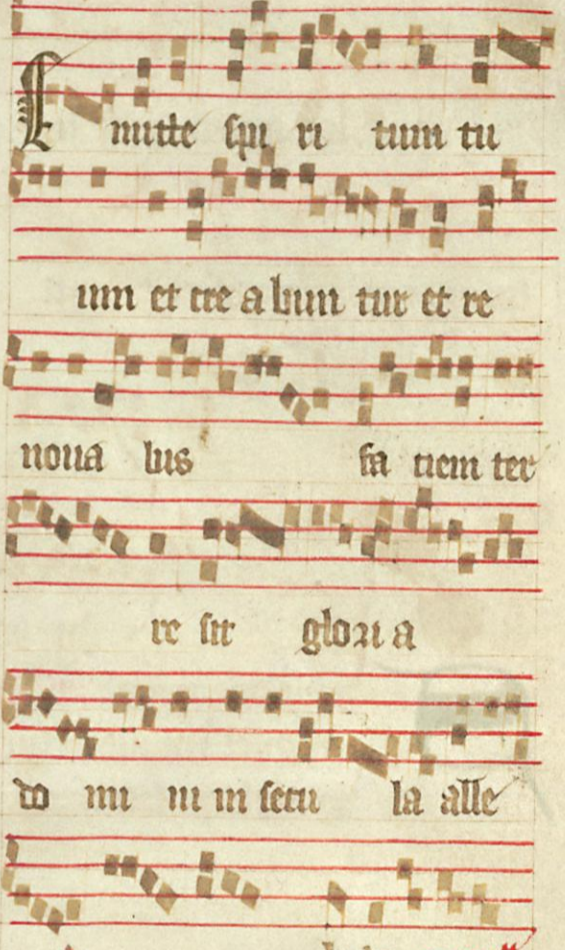 Emitte spi ri tium tu
um et cre a bun tur et re
noua bis fa ciem ter
re sit gloria
do mi ni in secu la alle